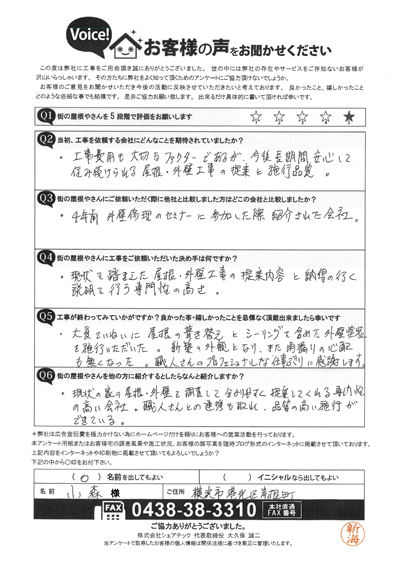 Voice!
お客様の声をお聞かせください
この度は弊社に工事をご用命頂き誠にありがとうございました。世の中には弊社の存在やサービスをご存知ないお客様が
沢山いらっしゃいます。その方たちに弊社をよく知って頂くためのアンケートにご協力頂けないでしょうか。
お客様のご意見をお聞かせいただき今後の活動に反映させていただきたいと考えております。良かったこと、嬉しかったこと
どのような些細な事でも結構です。是非ご協力お願い致します。出来るだけ具体的に書いて頂ければ幸いです。
Q1 街の屋根やさんを5段階で評価をお願いします ☆ ☆ ☆ ☆ ★
Q2 当初、工事を依頼する会社にどんなことを期待されていましたか?
・工事費用も大切なファクターであるが、今後長期間安心して
住み続けられる屋根・外壁工事の提案と施行品質。
Q3 街の屋根やさんにご依頼いただく際に他社と比較しました方はどこの会社と比較しましたか?
・4年前 外壁修理のセミナーに参加した際 紹介された会社。
Q4 街の屋根やさんに工事をご依頼いただいた決め手は何ですか?
・現状を踏まえた屋根・外壁工事の提案内容と納得の行く
説明を行う専門性の高さ。
Q5 工事が終わってみていかがですか?良かった事・嬉しかったことを忌憚なく頂戴出来ましたら幸いです
・大変ていねいに屋根の葺き替えとシーリングを含めた外壁塗装
を施行いただいた。新築の外観となり、また雨漏りの心配
も無くなった。職人さんのプロフェッショナルな仕事ぶりに感謝します。
Q6 街の屋根やさんを他の方に紹介するとしたらなんと紹介しますか?
・現状の家の屋根・外壁を調査して分かりやすく提案してくれる専門性
の高い会社。職人さんとの連携も取れ、品質の高い施行が
できている。
＊弊社は広告宣伝費を極力かけない為にホームページだけを頼りにお客様への営業活動を行っております。
本アンケート用紙またはお客様宅の調査風景や施工状況、お客様の顔写真を随時ブログ形式のインターネットに掲載させて頂いております。
上記内容をインターネットや印刷物に掲載させて頂いてもよろしいでしょうか?
下記の中から○印をお付け下さい。
(○)名前を出してもよい ( )イニシャルなら出してもよい
名前 小森 様 ご住所 横浜市
FAX 0438-38-3310 本社直通 FAX番号
ご協力ありがとうございました。
株式会社シェアテック 代表取締役 大久保 誠二
当アンケートで取得したお客様の個人情報は関係法規に基づき厳正に管理いたします。
新海